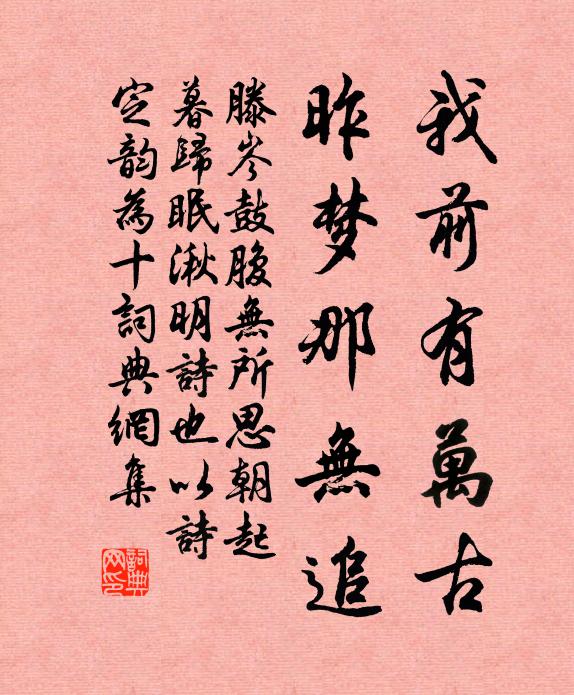 我前有萬古
昨梦那無追
滕岑鼓腹無所思朝起
暮歸眠湫明詩也以詩
定韵為十詞典網集
詞典网印